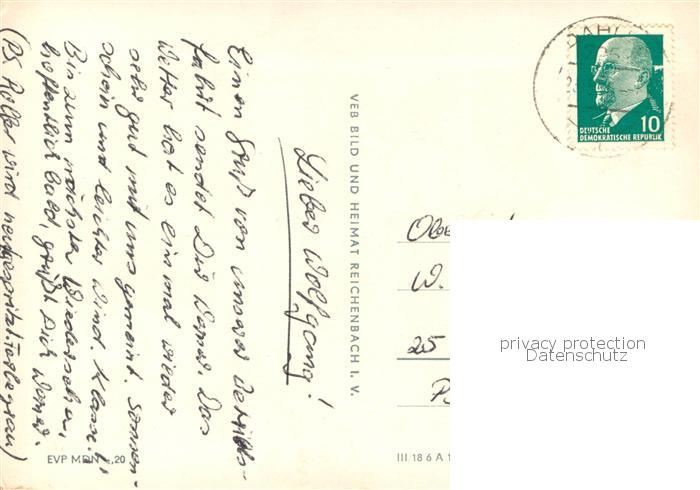 Lieber Wolfgang!
Einen Gruß von unserer
fahrt sendet Dir Werner. Das
Wetter hat es einmal wieder
sehr gut mit uns gemeint. Sonnen-
schein und leichter Wind. Klasse!
Bis zum nächsten Wiedersehen,
hoffentlich bald, grüßt Dich Werner.
(PS. Roller wird neu gespritzt.
VEB BILD UND HEIMAT REICHENBACH I. V.
DEUTSCHE
DEMOKRATISCHE REPUBLIK
10
W.
25
EVP MDN 20
III 18 6 A 1
privacy protection
Datenschutz